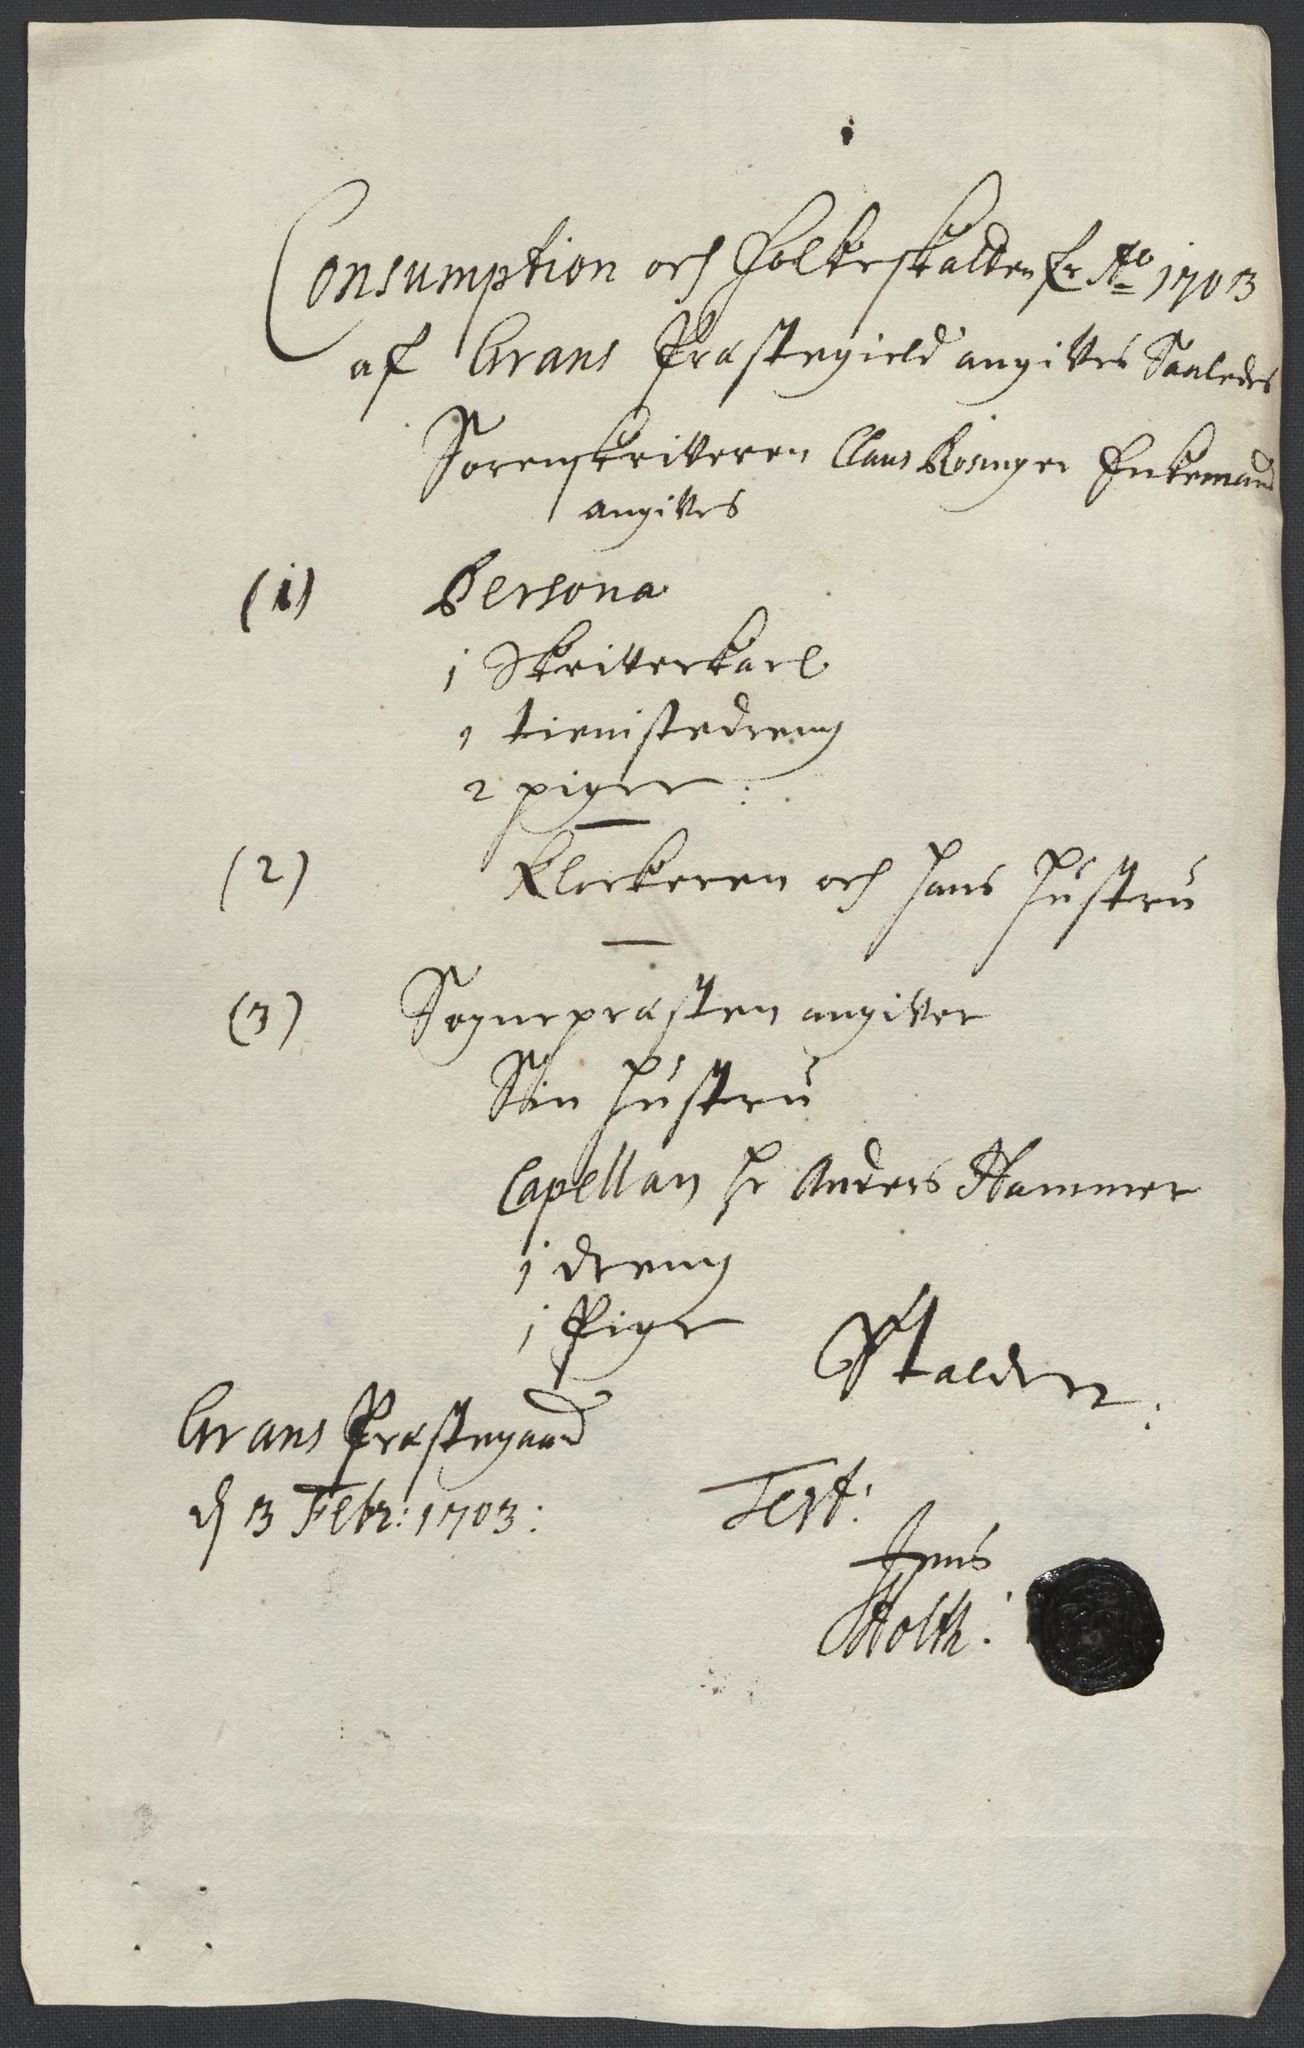 Consumption och Folkeskatten for Ao 1703
af Grans Præstegield angifves Saaledes
Sorenskrifveren Claus Røsinger Enkemand
angifves
(1) Persona
1 Skrifverkarl
1 tienistedreng
2 piger:
(2) Klockeren och hans hustru
(3) Sognepræsten angifver
Sin hustru
Capellan hr Anders Hammer
1 dreng
1 Pige
Grans Præstegaard
d 3 Febr: 1703:
Test:
Jens
Holth: